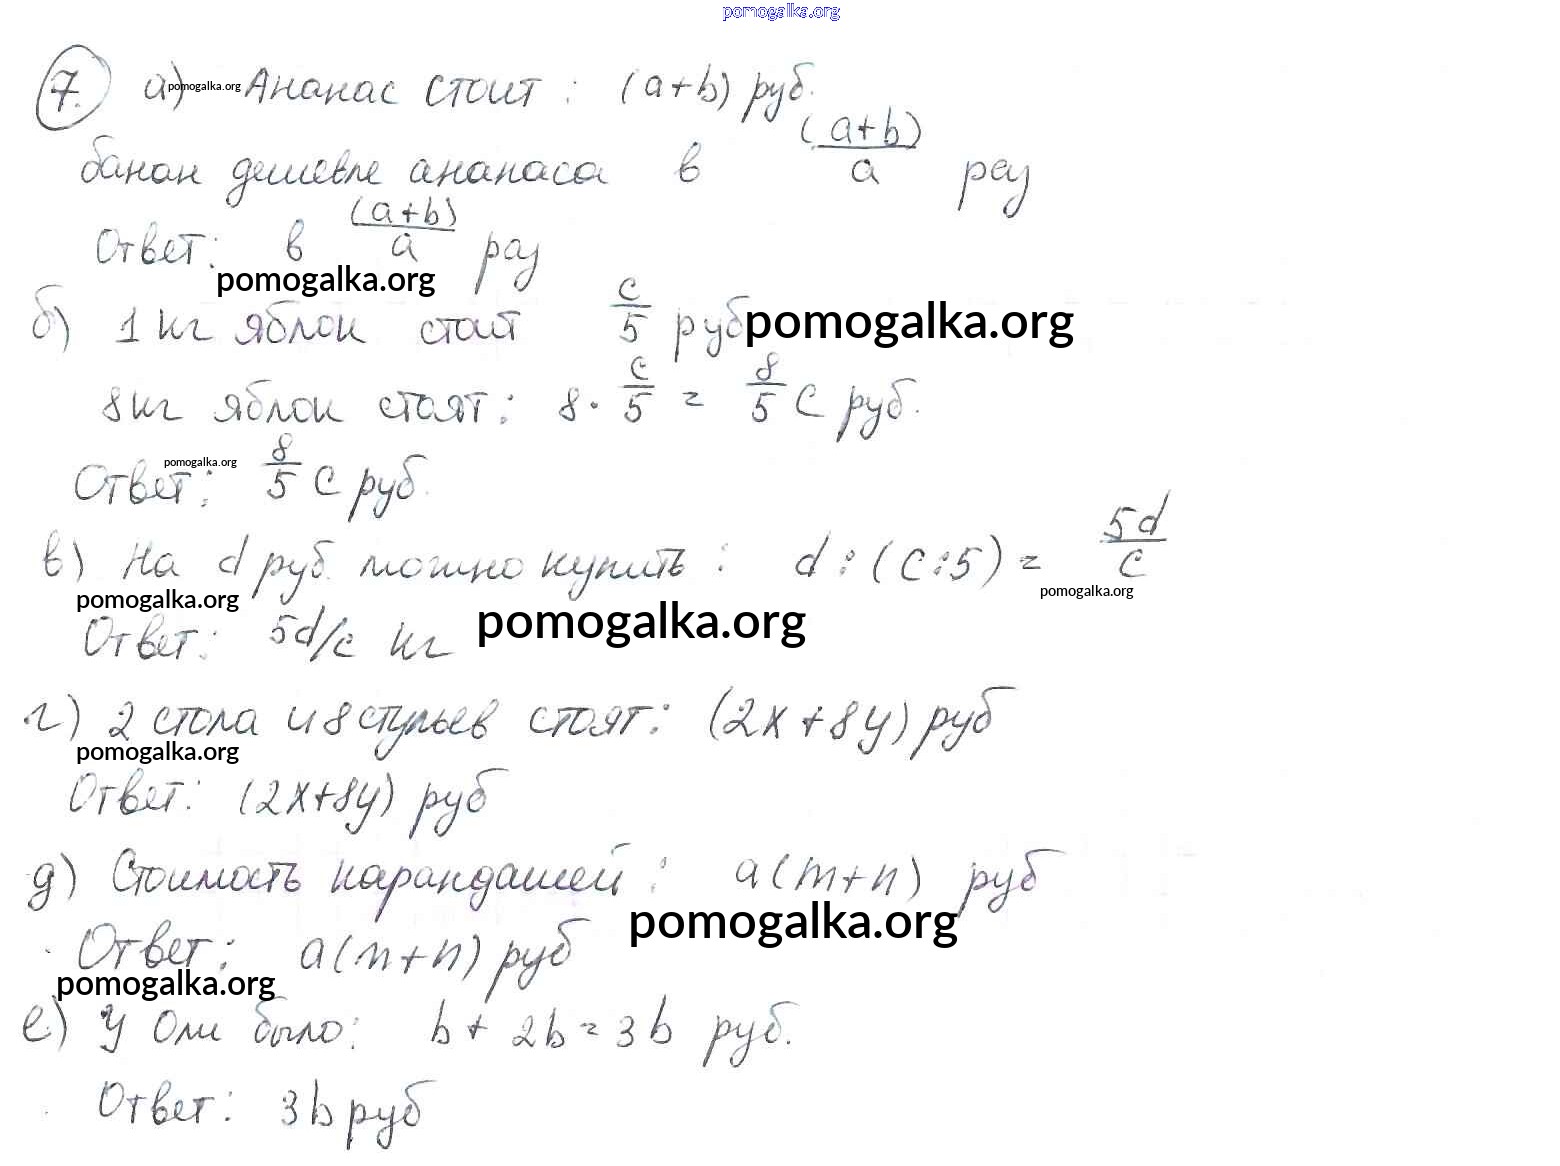 pomogalka.org
7. а) pomogalka.org Ананас стоит : (a+b) руб.
банан дешевле ананаса в (a+b)/a раз
Ответ: в (a+b)/a раз
pomogalka.org
б) 1 кг яблок стоит c/5 руб pomogalka.org
8 кг яблок стоят: 8 · c/5 = 8/5 c руб.
pomogalka.org
Ответ: 8/5 c руб.
в) На d руб. можно купить : d : (c:5) = 5d/c
pomogalka.org pomogalka.org
Ответ: 5d/c кг pomogalka.org
г) 2 стола и 8 стульев стоят: (2x+8y) руб
pomogalka.org
Ответ: (2x+8y) руб
д) Стоимость карандашей : a(m+n) руб
Ответ: a(m+n) руб pomogalka.org
pomogalka.org
е) У Оли было: b + 2b = 3b руб.
Ответ: 3b руб